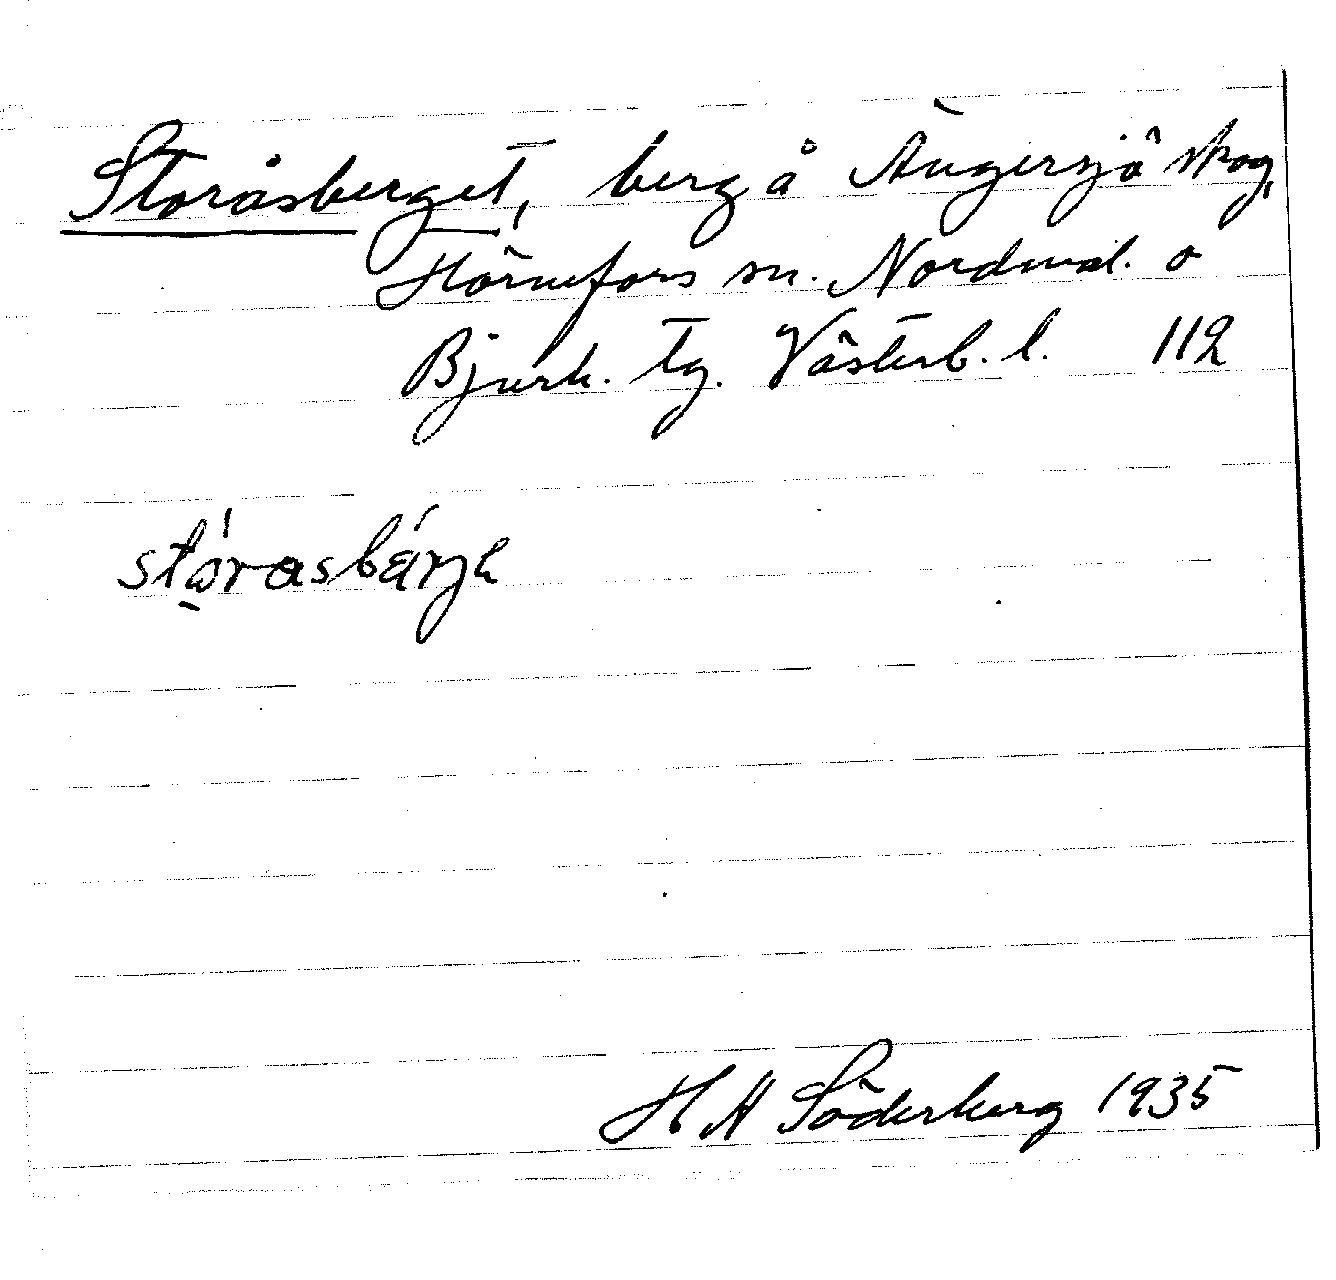 Storåsberget, berg å Ängersjö skog,
Hörnefors sn. Nordmal. o
Bjurh. tg. Västerb. l. 112
stǫ́rasbárje
H H Söderberg 1935